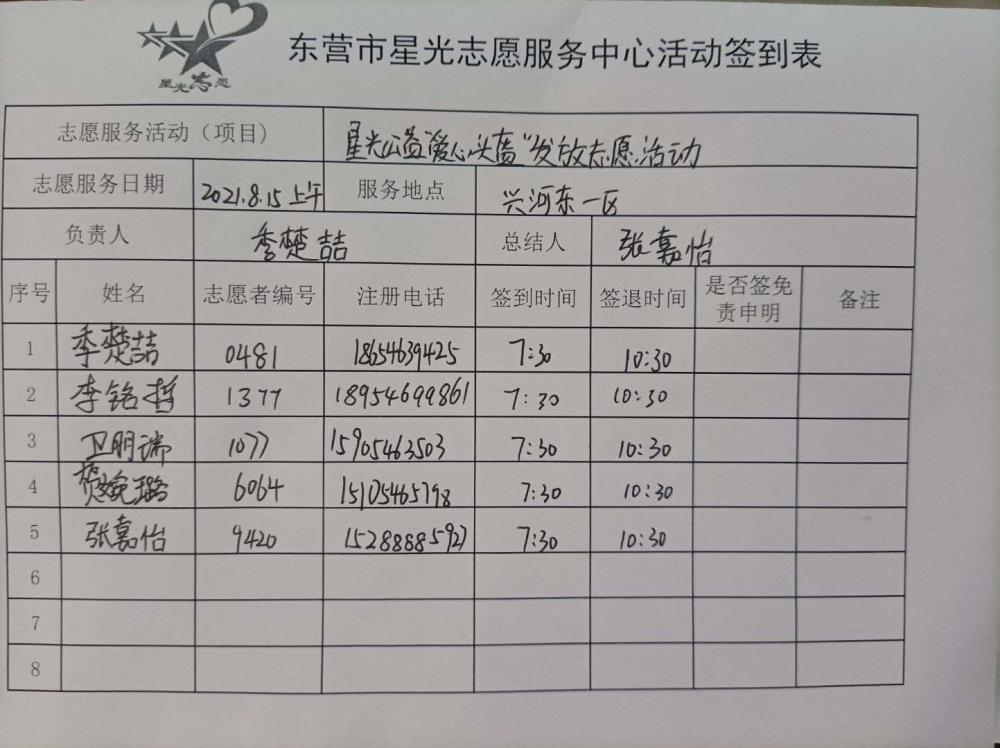 星光志愿
东营市星光志愿服务中心活动签到表
志愿服务活动（项目) 星光公益“爱心头盔”发放志愿活动
志愿服务日期 2021.8.15 上午 服务地点 兴河东一区
负责人 季楚喆 总结人 张嘉怡
序号 姓名 志愿者编号 注册电话 签到时间 签退时间 是否签免责申明 备注
1 季楚喆 0481 18654639425 7:30 10:30
2 李铭哲 1377 18954699861 7:30 10:30
3 卫明瑞 1077 15905463503 7:30 10:30
4 贺婉璐 6064 15105465798 7:30 10:30
5 张嘉怡 9420 15288885927 7:30 10:30
6
7
8